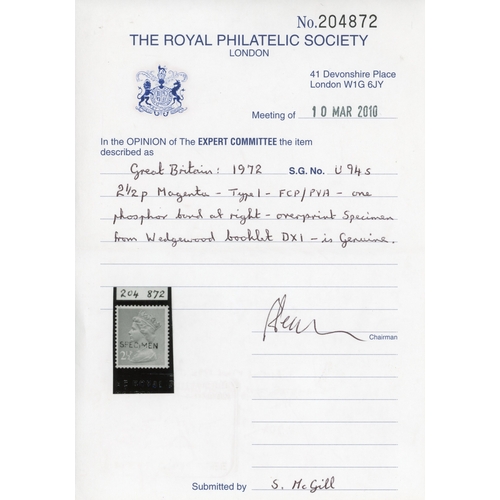 No.204872
THE ROYAL PHILATELIC SOCIETY
LONDON
41 Devonshire Place
London W1G 6JY
Meeting of 10 MAR 2010
In the OPINION of The EXPERT COMMITTEE the item
described as
Great Britain: 1972 S.G. No. U94s
2½p Magenta - Type 1 - FCP/PVA - one
phosphor band at right - overprint Specimen
from Wedgewood booklet DX1 - is Genuine.
204 872
SPECIMEN
2½
Chairman
Submitted by S. McGill